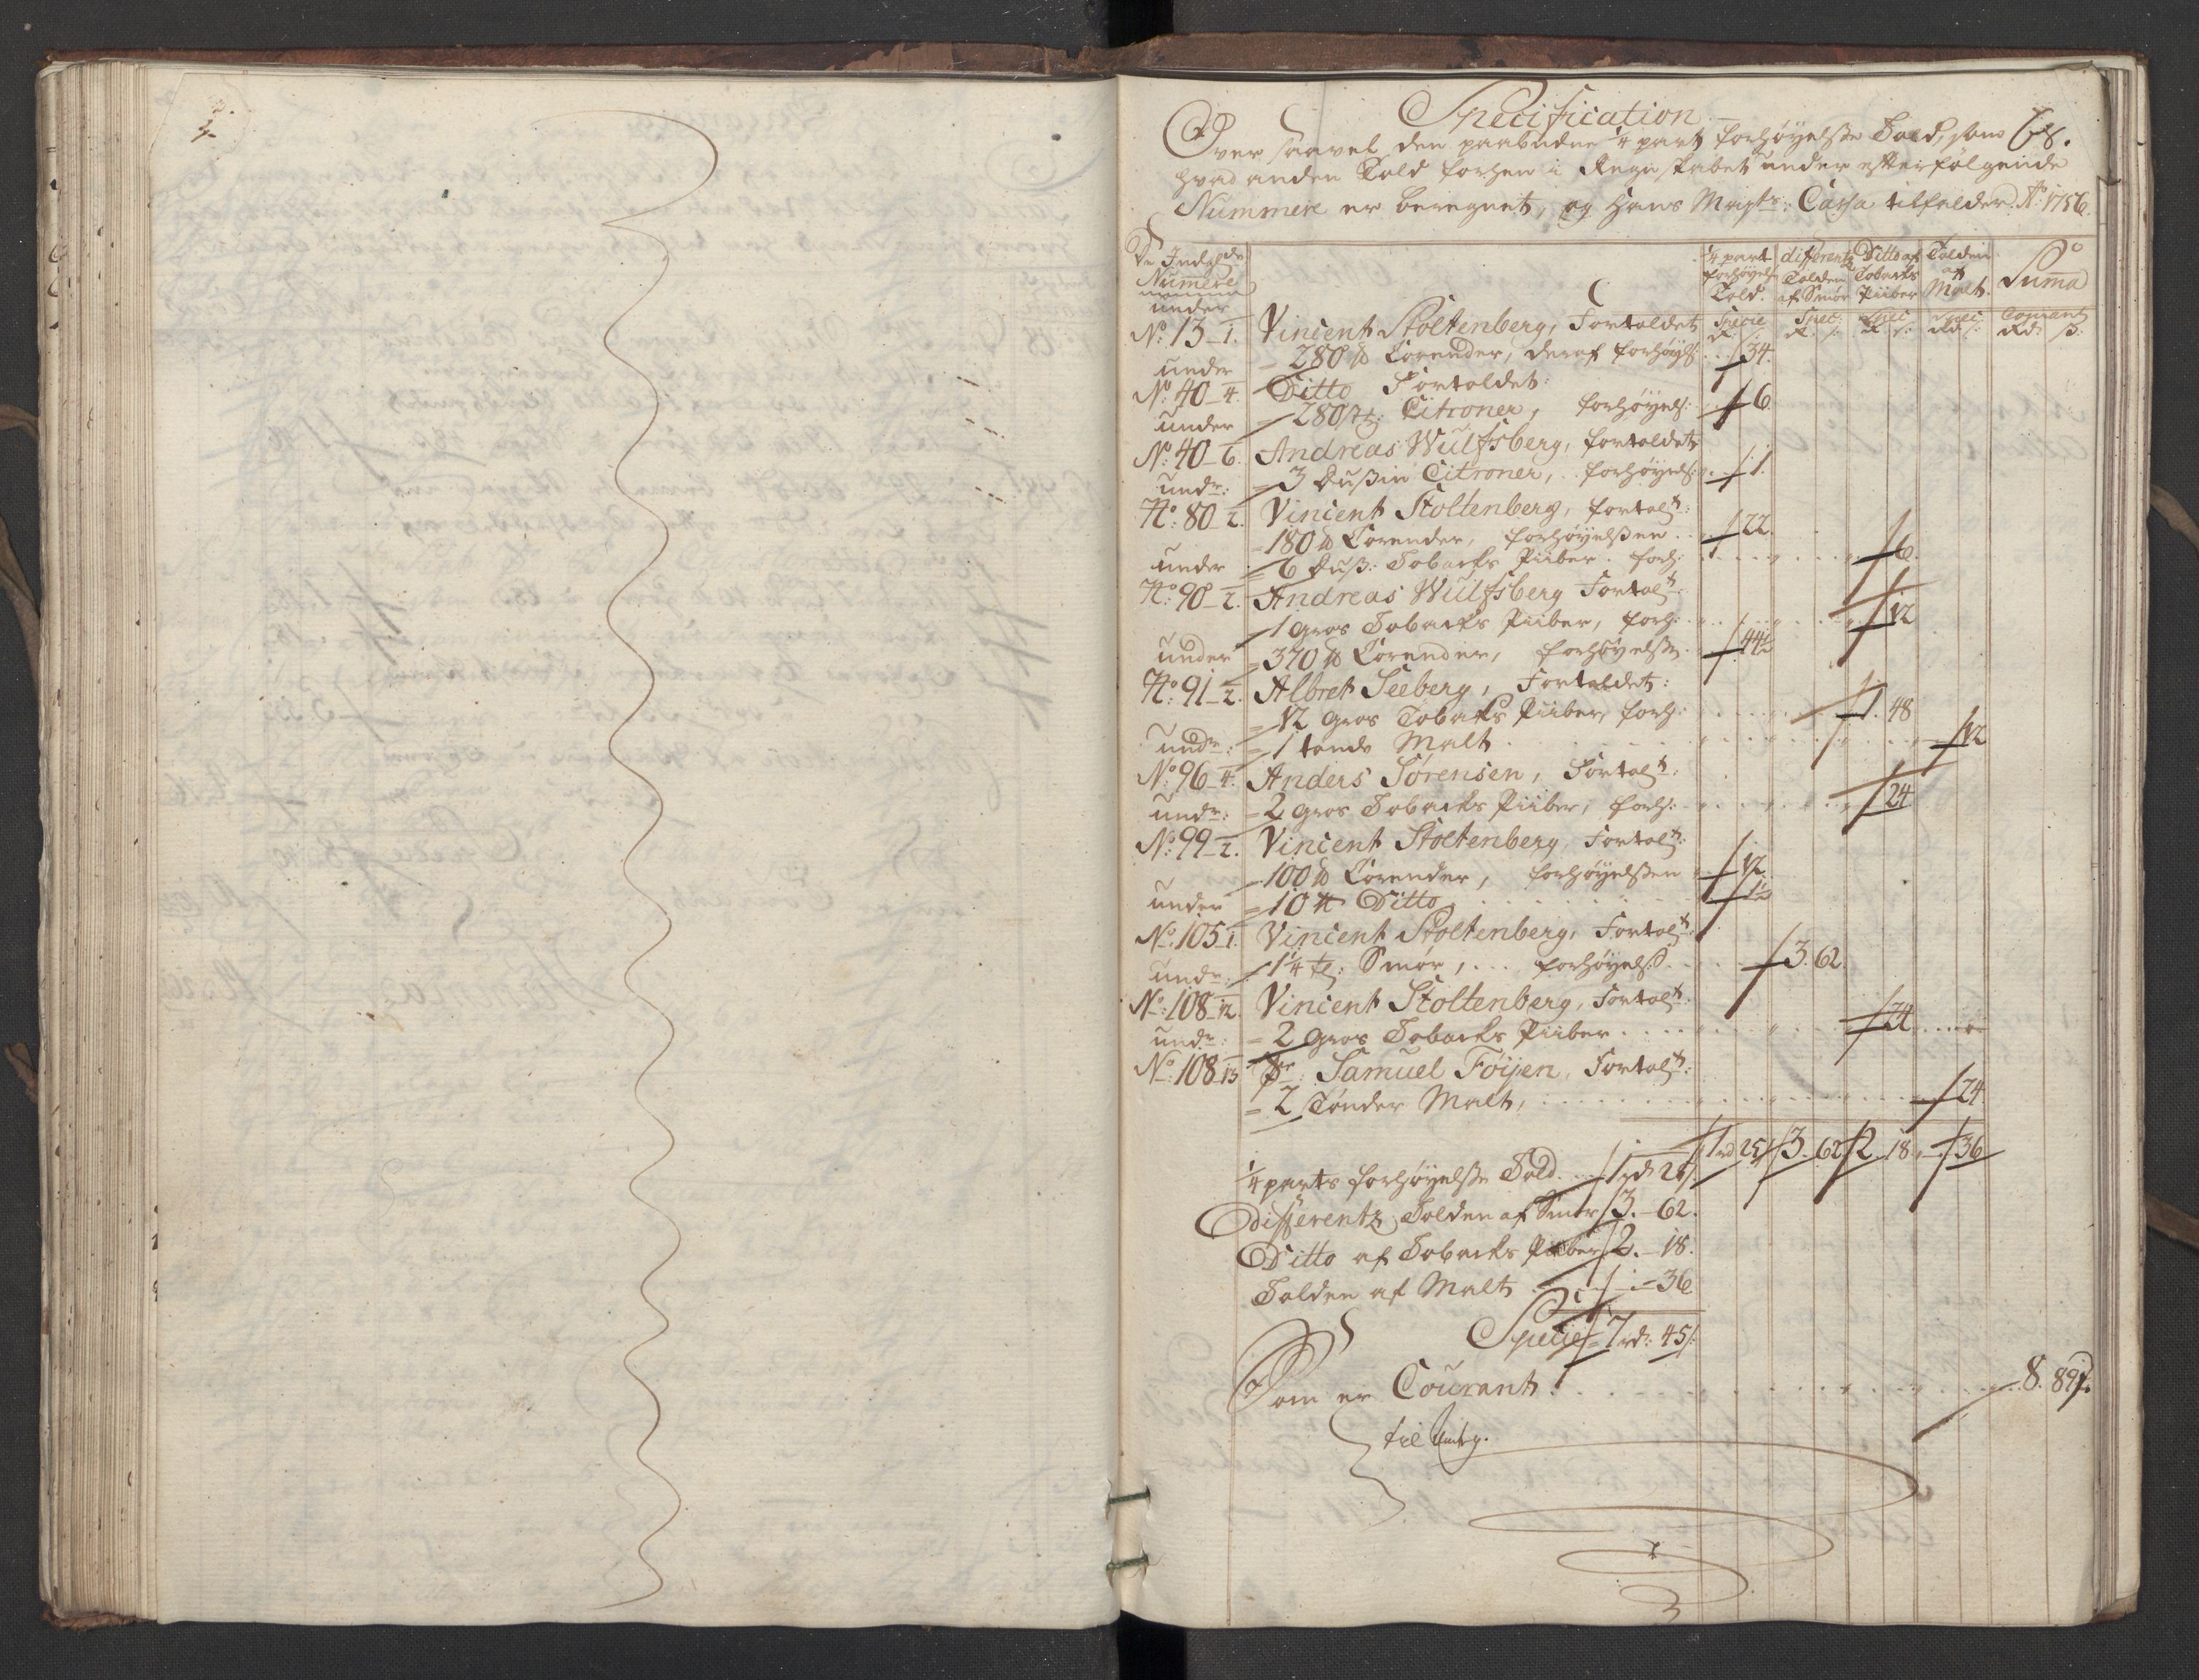 Specification
Over saavel den paabudne 1/4 part forhøyelsse Told, som 68.
hvad anden Told forhen i Regnskabet under efterfølgende
Nummere er beregnet, og Hans Mayts: Cassa tilfalder Ao: 1756.
De Indgde Numere
1/4 part forhøyelse Told.
differentz Tolden af Smør
Ditto af Tobacks Piiber
Tolden af Malt.
Suma
Specie
Spec:
Spec:
Spec:
Courant
under
No: 13_1. Vincent Stoltenberg, Fortoldet
= 280 lb Corender, deraf forhøyels: 34.
under
No: 40_4. Ditto Fortoldet:
= 280 st: Citroner, forhøyels: 6
under
No: 40_6. Andreas Wulfsberg, fortoldet
= 3 Dußin Citroner, forhøyels: 1.
undr:
No: 80_2. Vincent Stoltenberg, fortolt:
= 180 lb Corender, forhøyelßen 22
= 6 Duß: Tobacks Piiber. forh: 6.
under
No: 90_2. Andreas Wulfsberg Fortolt:
1 gros Tobacks Piiber, forh: 12
= 370 lb Corender, forhøyelsse 44½
under
No: 91_2. Albret Seeberg, Fortoldet:
= 12 gros Tobacks Piiber, forh: 1. 48
= 1 tønde Malt 12
undr:
No: 96_4. Anders Sørensen, Fortolt:
= 2 gros Tobacks Piiber, forh: 24
undr:
No: 99_2. Vincent Stoltenberg, Fortolt:
100 lb Corender, forhøyelßen 12.
= 10 lb Ditto 1½
under
No: 105_1. Vincent Stoltenberg, Fortolt:
1¼ td: Smør, ... forhøyelsse 3. 62.
undr:
No: 108_12. Vincent Stoltenberg, Fortolt:
= 2 gros Tobacks Piiber 24
undr:
No: 108_13 Sr: Samuel Føyen, Fortolt:
= 2 Tønder Malt, 24.
1rd 25 3. 62 2. 18. 36
1/4 parts forhøyelsse Told 1rd 25
Differentz Tolden af Smør 3. 62.
Ditto af Tobacks Piiber 2. 18.
Tolden af Malt 36
Specie 7rd: 45
Som er Courant 8. 89